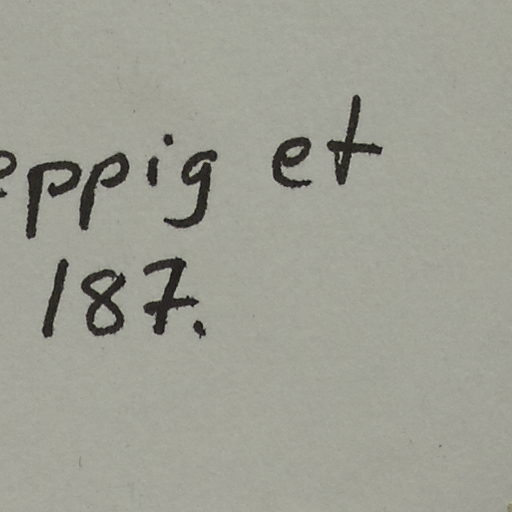 eppig et
187.